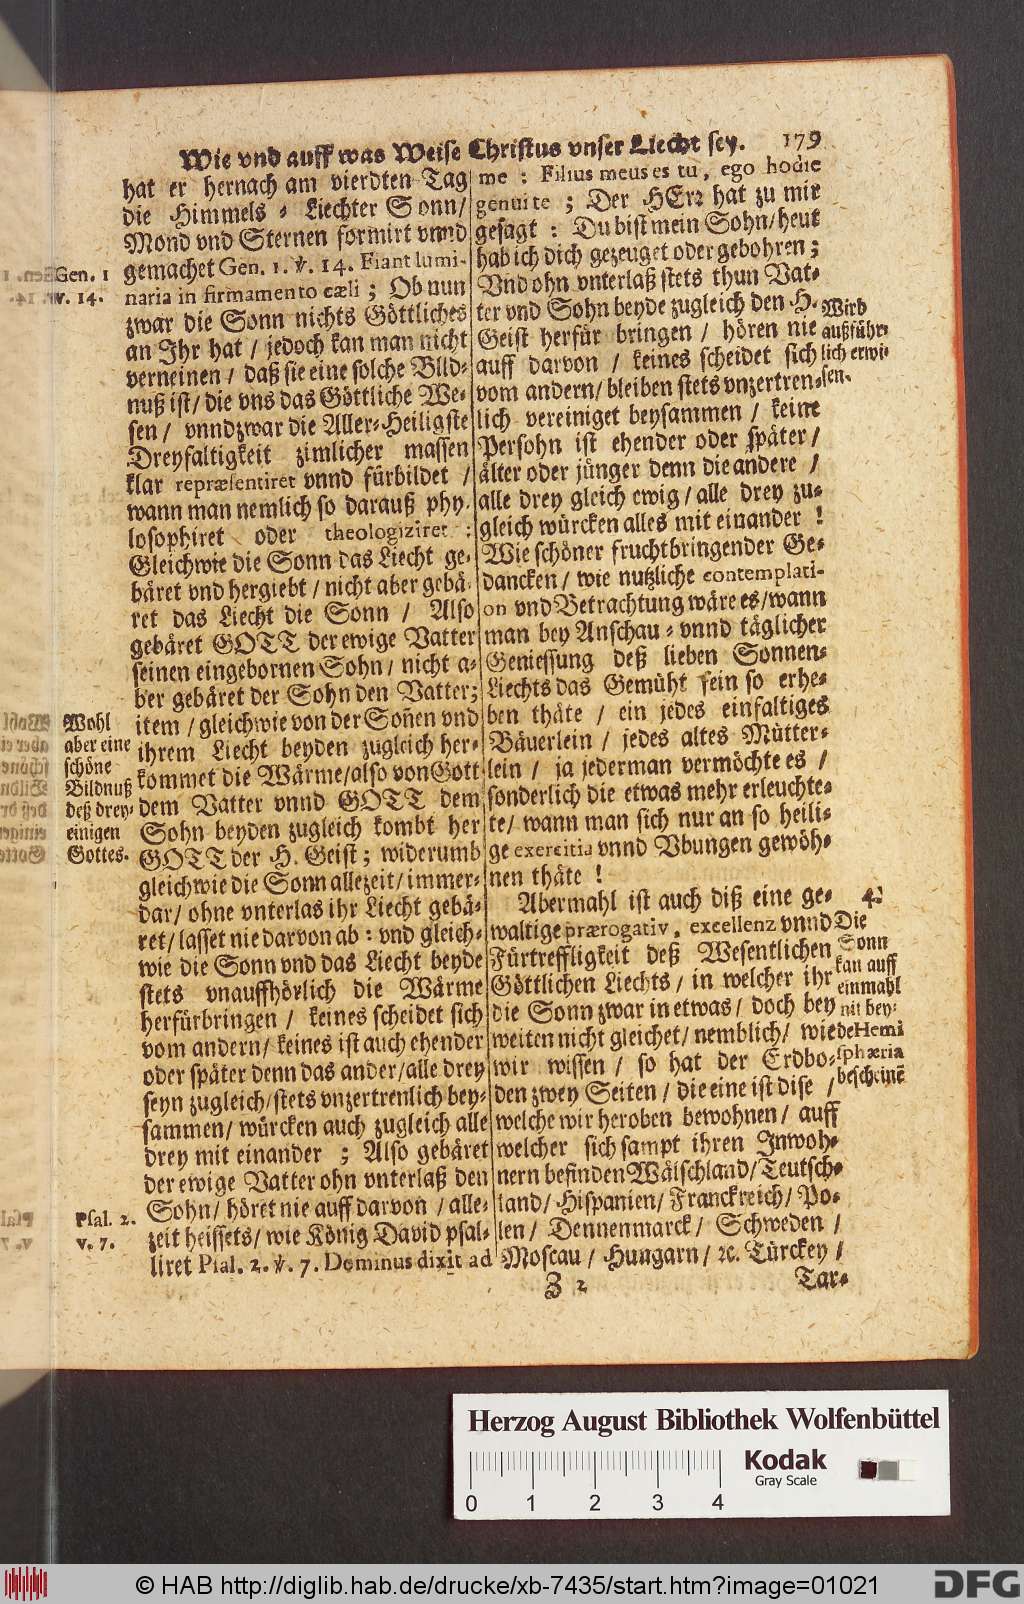 Wie vnd auff was Weise Christus vnser Liecht sey. 179
hat er hernach am vierdten Tag
die Himmels-Liechter Sonn/
Mond vnd Sternen formirt vnnd
gemachet Gen. 1. ℣. 14. Fiant lumi-
naria in firmamento cæli; Ob nun
zwar die Sonn nichts Göttliches
an Ihr hat / jedoch kan man nicht
verneinen / daß sie eine solche Bild-
nuß ist / die vns das Göttliche We-
sen / vnnd zwar die Aller-Heiligste
Dreyfaltigkeit zimlicher massen
klar repræsentiret vnnd fürbildet /
wann man nemlich so darauß phy-
losophiret oder theologiziret:
Gleichwie die Sonn das Liecht ge-
bäret vnd hergiebt / nicht aber gebä-
ret das Liecht die Sonn / Also
gebäret GOTT der ewige Vatter
seinen eingebornen Sohn / nicht a-
ber gebäret der Sohn den Vatter;
item / gleichwie von der Soñen vnd
ihrem Liecht beyden zugleich her-
kommet die Wärme / also von Gott
dem Vatter vnnd GOTT dem
Sohn beyden zugleich kombt her
GOTT der H. Geist; widerumb
gleichwie die Sonn allezeit / immer-
dar / ohne vnterlas ihr Liecht gebä-
ret / lasset nie darvon ab: vnd gleich-
wie die Sonn vnd das Liecht beyde
stets vnauffhörlich die Wärme
herfürbringen / keines scheidet sich
vom andern / keines ist auch ehender
oder später denn das ander / alle drey
seyn zugleich / stets vnzertrenlich bey-
sammen / würcken auch zugleich alle
drey mit einander; Also gebäret
der ewige Vatter ohn vnterlaß den
Sohn / höret nie auff darvon / alle-
zeit heissets / wie König David psal-
liret Psal. 2. ℣. 7. Dominus dixit ad
Gen. 1
v. 14.
Wohl
aber eine
schöne
Bildnuß
deß drey-
einigen
Gottes.
Psal. 2.
v. 7.
me: Filius meus es tu, ego hodie
genui te; Der HErr hat zu mir
gesagt: Du bist mein Sohn / heut
hab ich dich gezeuget oder gebohren;
Vnd ohn vnterlaß stets thun Vat-
ter vnd Sohn beyde zugleich den H.
Geist herfür bringen / hören nie
auff darvon / keines scheidet sich
vom andern / bleiben stets vnzertren-
lich vereiniget beysammen / keine
Persohn ist ehender oder später /
älter oder jünger denn die andere /
alle drey gleich ewig / alle drey zu-
gleich würcken alles mit einander!
Wie schöner fruchtbringender Ge-
dancken / wie nutzliche contemplati-
on vnd Betrachtung wäre es / wann
man bey Anschau- vnnd täglicher
Geniessung deß lieben Sonnen-
Liechts das Gemüht sein so erhe-
ben thäte / ein jedes einfaltiges
Bäuerlein / jedes altes Mütter-
lein / ja jederman vermöchte es /
sonderlich die etwas mehr erleuchte-
te / wann man sich nur an so heili-
ge exercitia vnnd Vbungen gewöh-
nen thäte!
Abermahl ist auch diß eine ge-
waltige prærogativ, excellenz vnnd
Fürtreffligkeit deß Wesentlichen
Göttlichen Liechts / in welcher ihr
die Sonn zwar in etwas / doch bey
weiten nicht gleichet / nemblich / wie
wir wissen / so hat der Erdbo-
den zwey Seiten / die eine ist dise /
welche wir heroben bewohnen / auff
welcher sich sampt ihren Inwoh-
nern befinden Wälschland / Teutsch-
land / Hispanien / Franckreich / Po-
len / Dennenmarck / Schweden /
Moscau / Hungarn / ꝛc. Türckey /
Wird
außführ-
lich erwi-
sen.
4.
Die
Sonn
kan auff
einmahl
nit bey-
de Hemi
sphæria
bescheinē
Z 2
Tar-
Herzog August Bibliothek Wolfenbüttel
Kodak
Gray Scale
0 1 2 3 4
© HAB http://diglib.hab.de/drucke/xb-7435/start.htm?image=01021
DFG